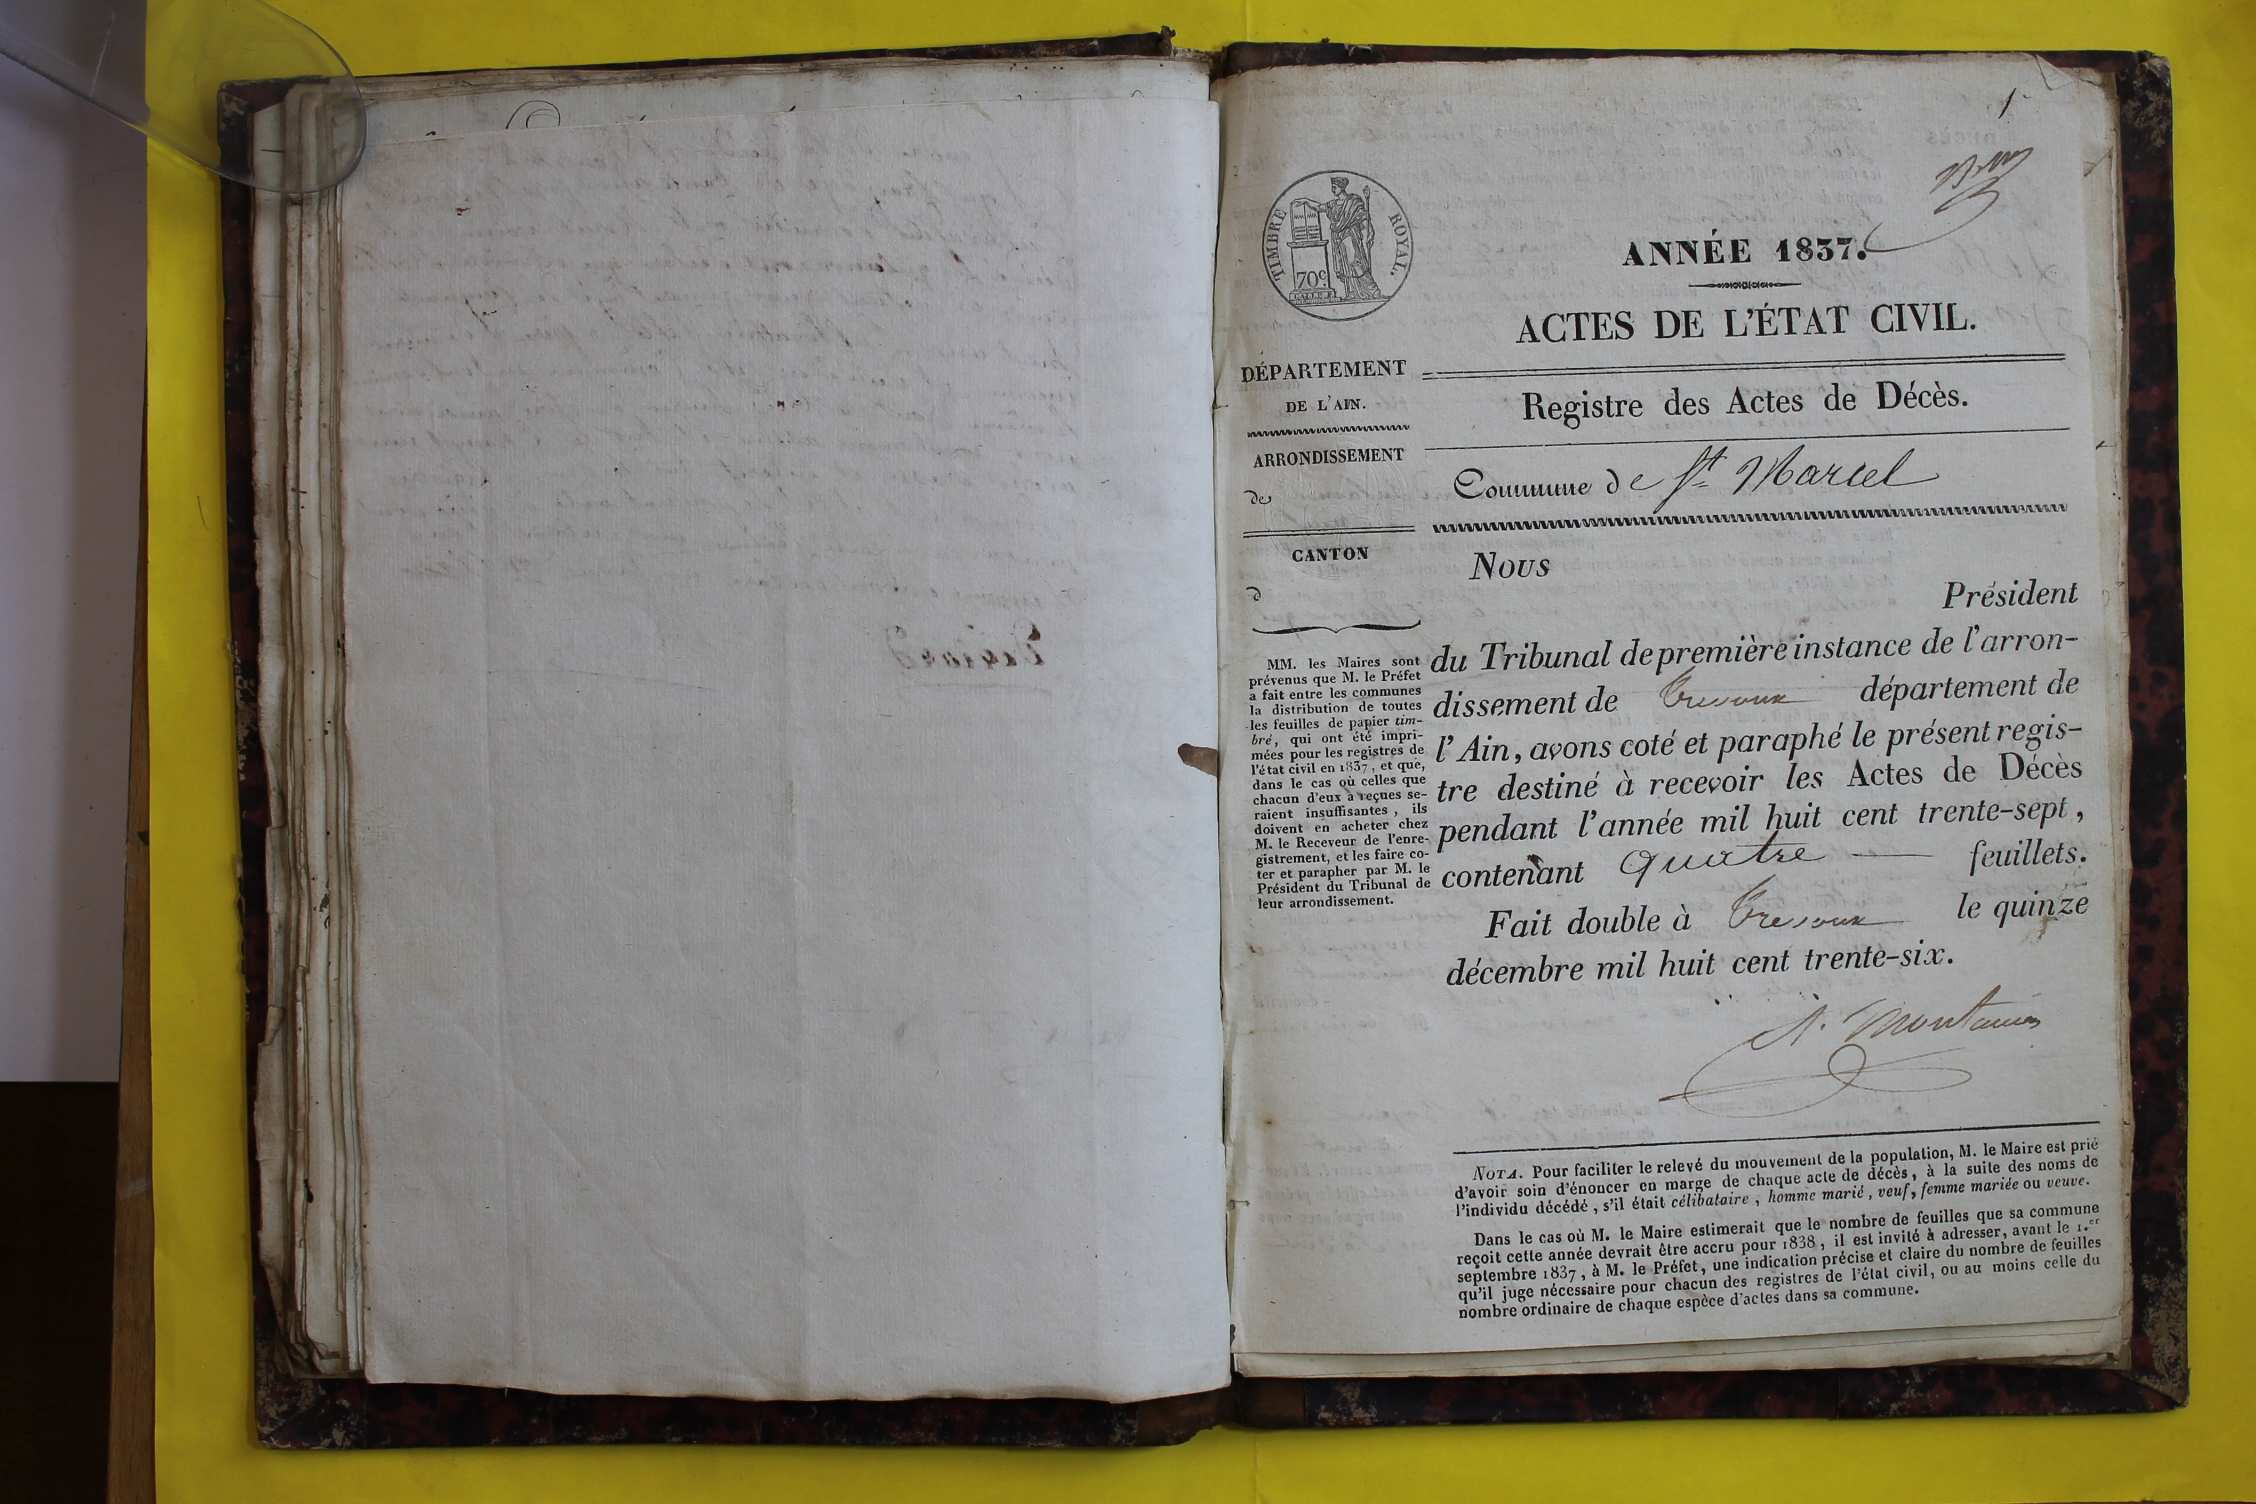 1
TIMBRE ROYAL.
70c.
ANNÉE 1837.
ACTES DE L'ÉTAT CIVIL.
DÉPARTEMENT
DE L'AIN.
ARRONDISSEMENT
de
CANTON
d
MM. les Maires sont
prévenus que M. le Préfet
a fait entre les communes
la distribution de toutes
les feuilles de papier tim-
bré, qui ont été impri-
mées pour les registres de
l'état civil en 1837, et que,
dans le cas où celles que
chacun d'eux a reçues se-
raient insuffisantes, ils
doivent en acheter chez
M. le Receveur de l'enre-
gistrement, et les faire co-
ter et parapher par M. le
Président du Tribunal de
leur arrondissement.
Registre des Actes de Décès.
Commune de St Marcel
Nous
Président
du Tribunal de première instance de l'arron-
dissement de Trevoux département de
l'Ain, avons coté et paraphé le présent regis-
tre destiné à recevoir les Actes de Décès
pendant l'année mil huit cent trente-sept,
contenant quatre feuillets.
Fait double à Trevoux le quinze
décembre mil huit cent trente-six.
NOTA. Pour faciliter le relevé du mouvement de la population, M. le Maire est prié
d'avoir soin d'énoncer en marge de chaque acte de décès, à la suite des noms de
l'individu décédé, s'il était célibataire, homme marié, veuf, femme mariée ou veuve.
Dans le cas où M. le Maire estimerait que le nombre de feuilles que sa commune
reçoit cette année devrait être accru pour 1838, il est invité à adresser, avant le 1.er
septembre 1837, à M. le Préfet, une indication précise et claire du nombre de feuilles
qu'il juge nécessaire pour chacun des registres de l'état civil, ou au moins celle du
nombre ordinaire de chaque espèce d'actes dans sa commune.